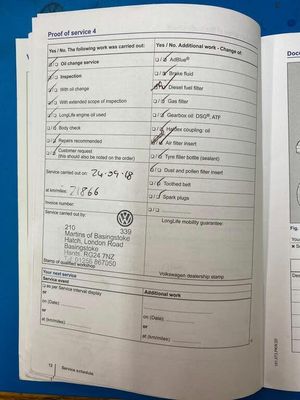 Proof of service 4
Yes / No. The following work was carried out:
Oil change service
Inspection
With oil change
With extended scope of inspection
LongLife engine oil used
Body check
Repairs recommended
Customer request
(this should also be noted on the order)
Service carried out on: 24-09-18
at km/miles: 21866
Invoice number:
Service carried out by:
210 339
Martins of Basingstoke
Hatch, London Road
Basingstoke
Hants. RG24 7NZ
Tel 01256 867050
Stamp of qualified workshop
Yes / No. Additional work - Change of:
AdBlue®
Brake fluid
Diesel fuel filter
Gas filter
Gearbox oil: DSG®, ATF
Haldex coupling: oil
Air filter insert
Tyre filler bottle (sealant)
Dust and pollen filter insert
Toothed belt
Spark plugs
LongLife mobility guarantee:
Volkswagen dealership stamp
Your next service
Service event
as per Service interval display
or
on (Date)
or
at (km/miles)
Additional work
on (Date)
or
at (km/miles)
12 Service schedule